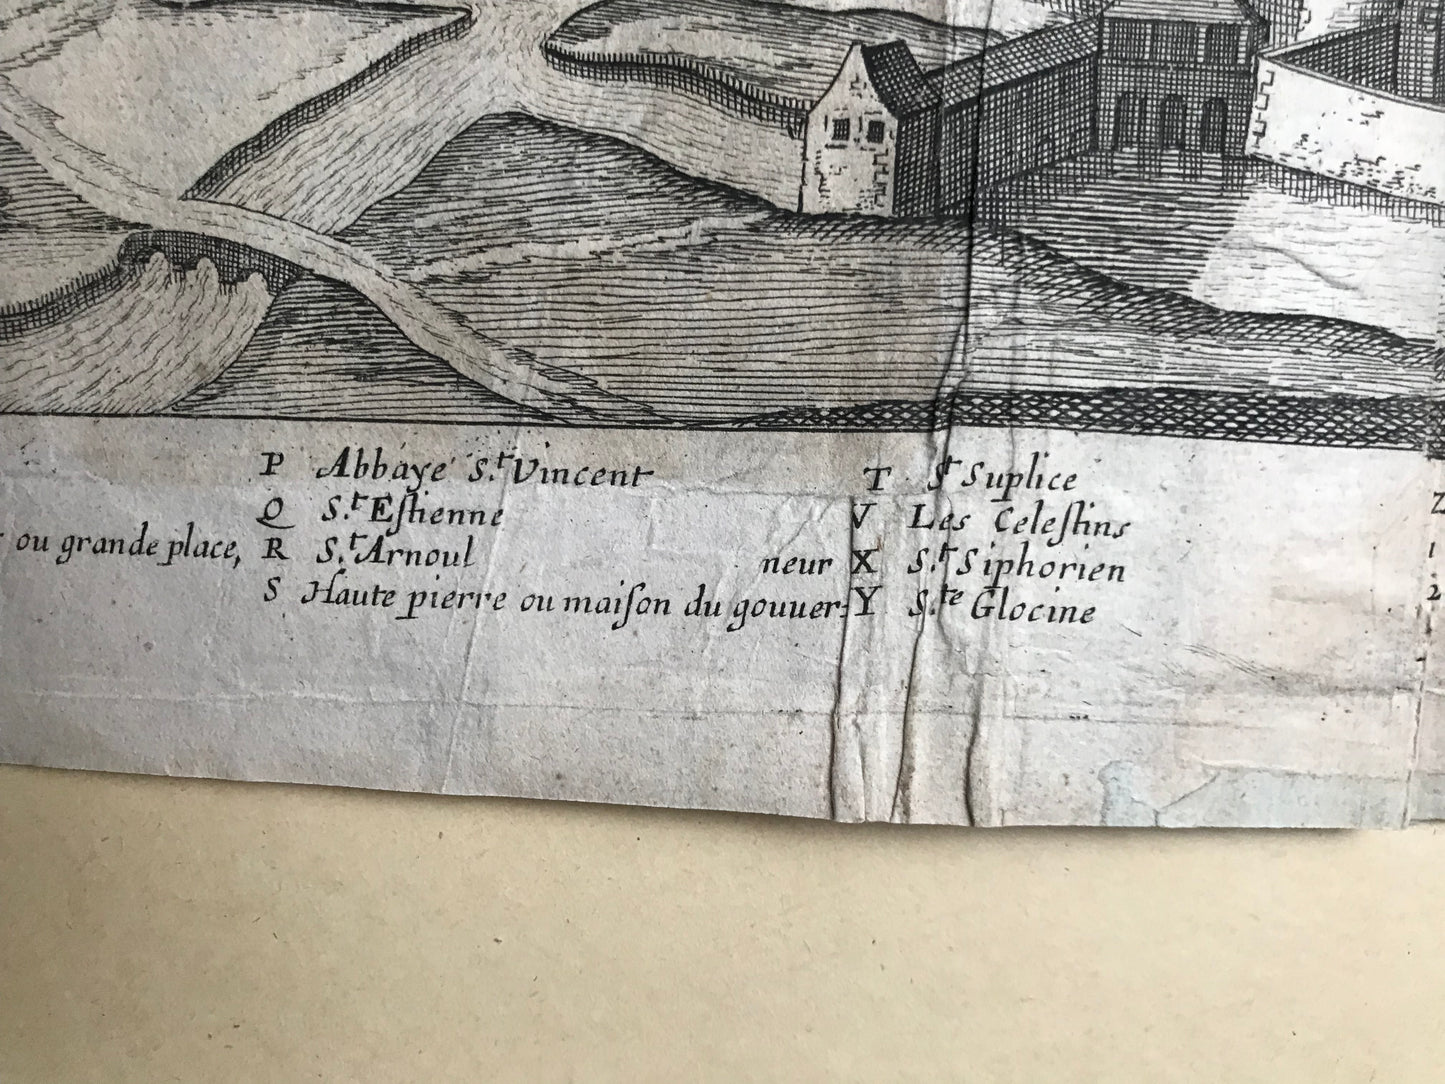 P Abbaye S.t Vincent
Q S.t Eſtienne
ou grande place, R S.t Arnoul
S Haute pierre ou maiſon du gouuer=
neur
T S.t Suplice
V Les Celeſtins
X S.t Siphorien
Y S.te Glocine
Z
1
2